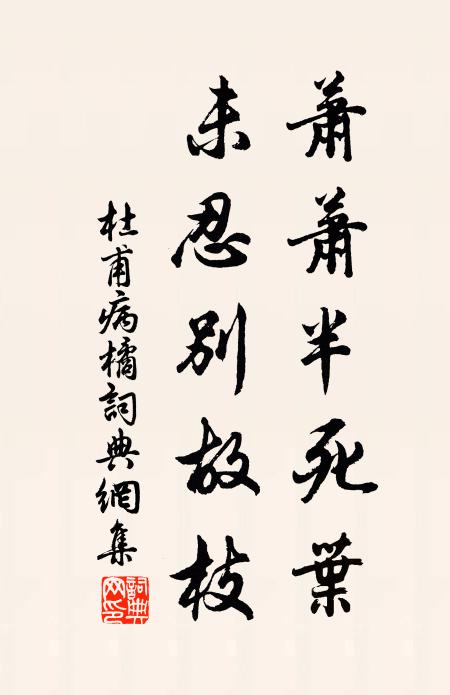 蕭蕭半死葉
未忍別故枝
杜甫病橘詞典網集
詞典网印